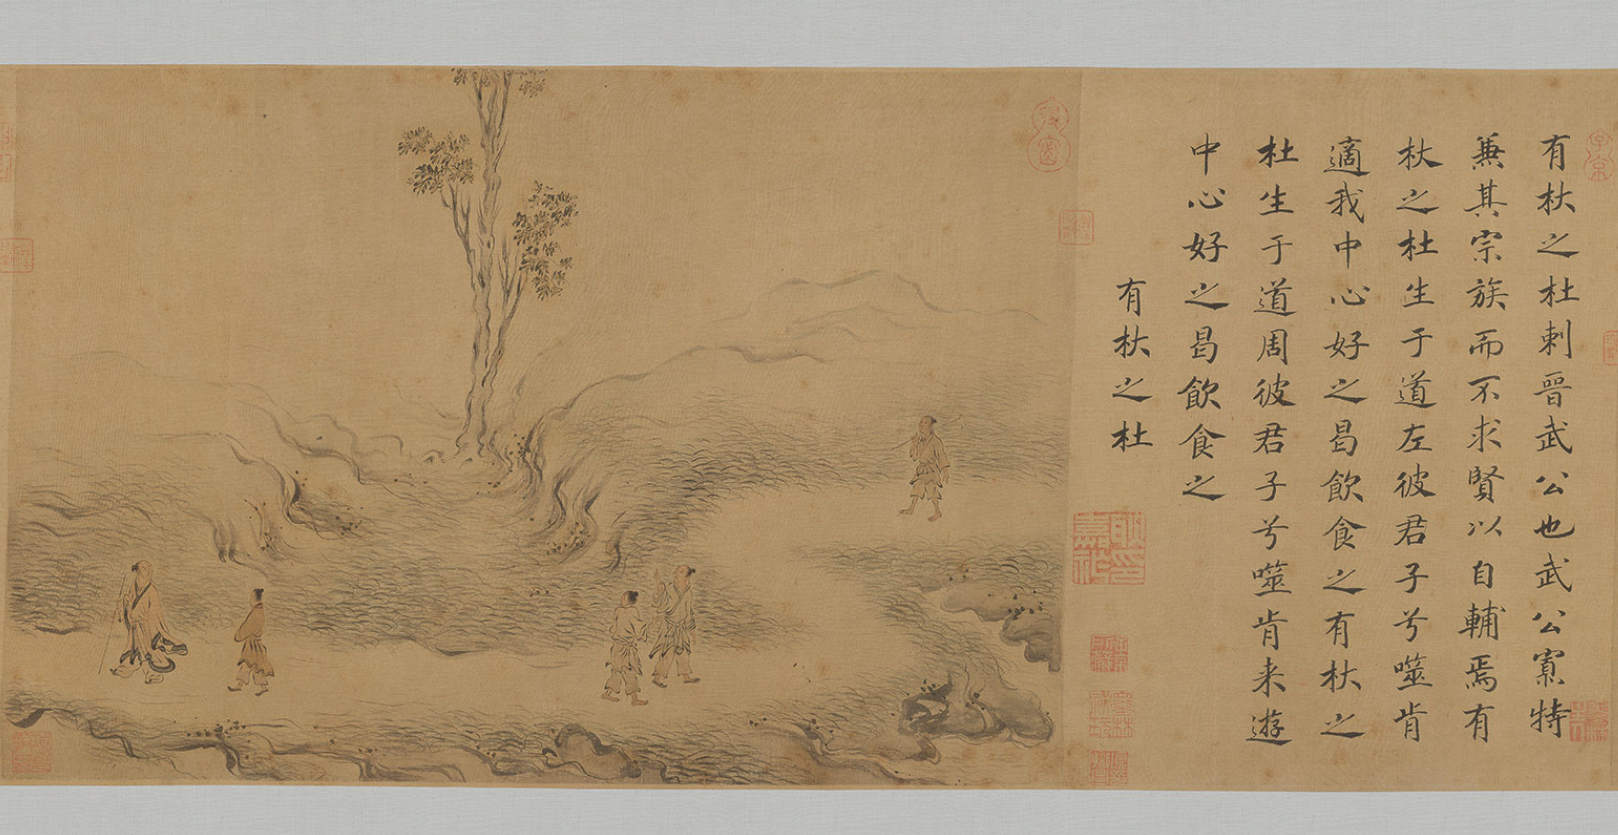 有杕之杜刺晉武公也武公寡特
兼其宗族而不求賢以自輔焉有
杕之杜生于道左彼君子兮噬肯
適我中心好之曷飲食之有杕之
杜生于道周彼君子兮噬肯来遊
中心好之曷飲食之
有杕之杜